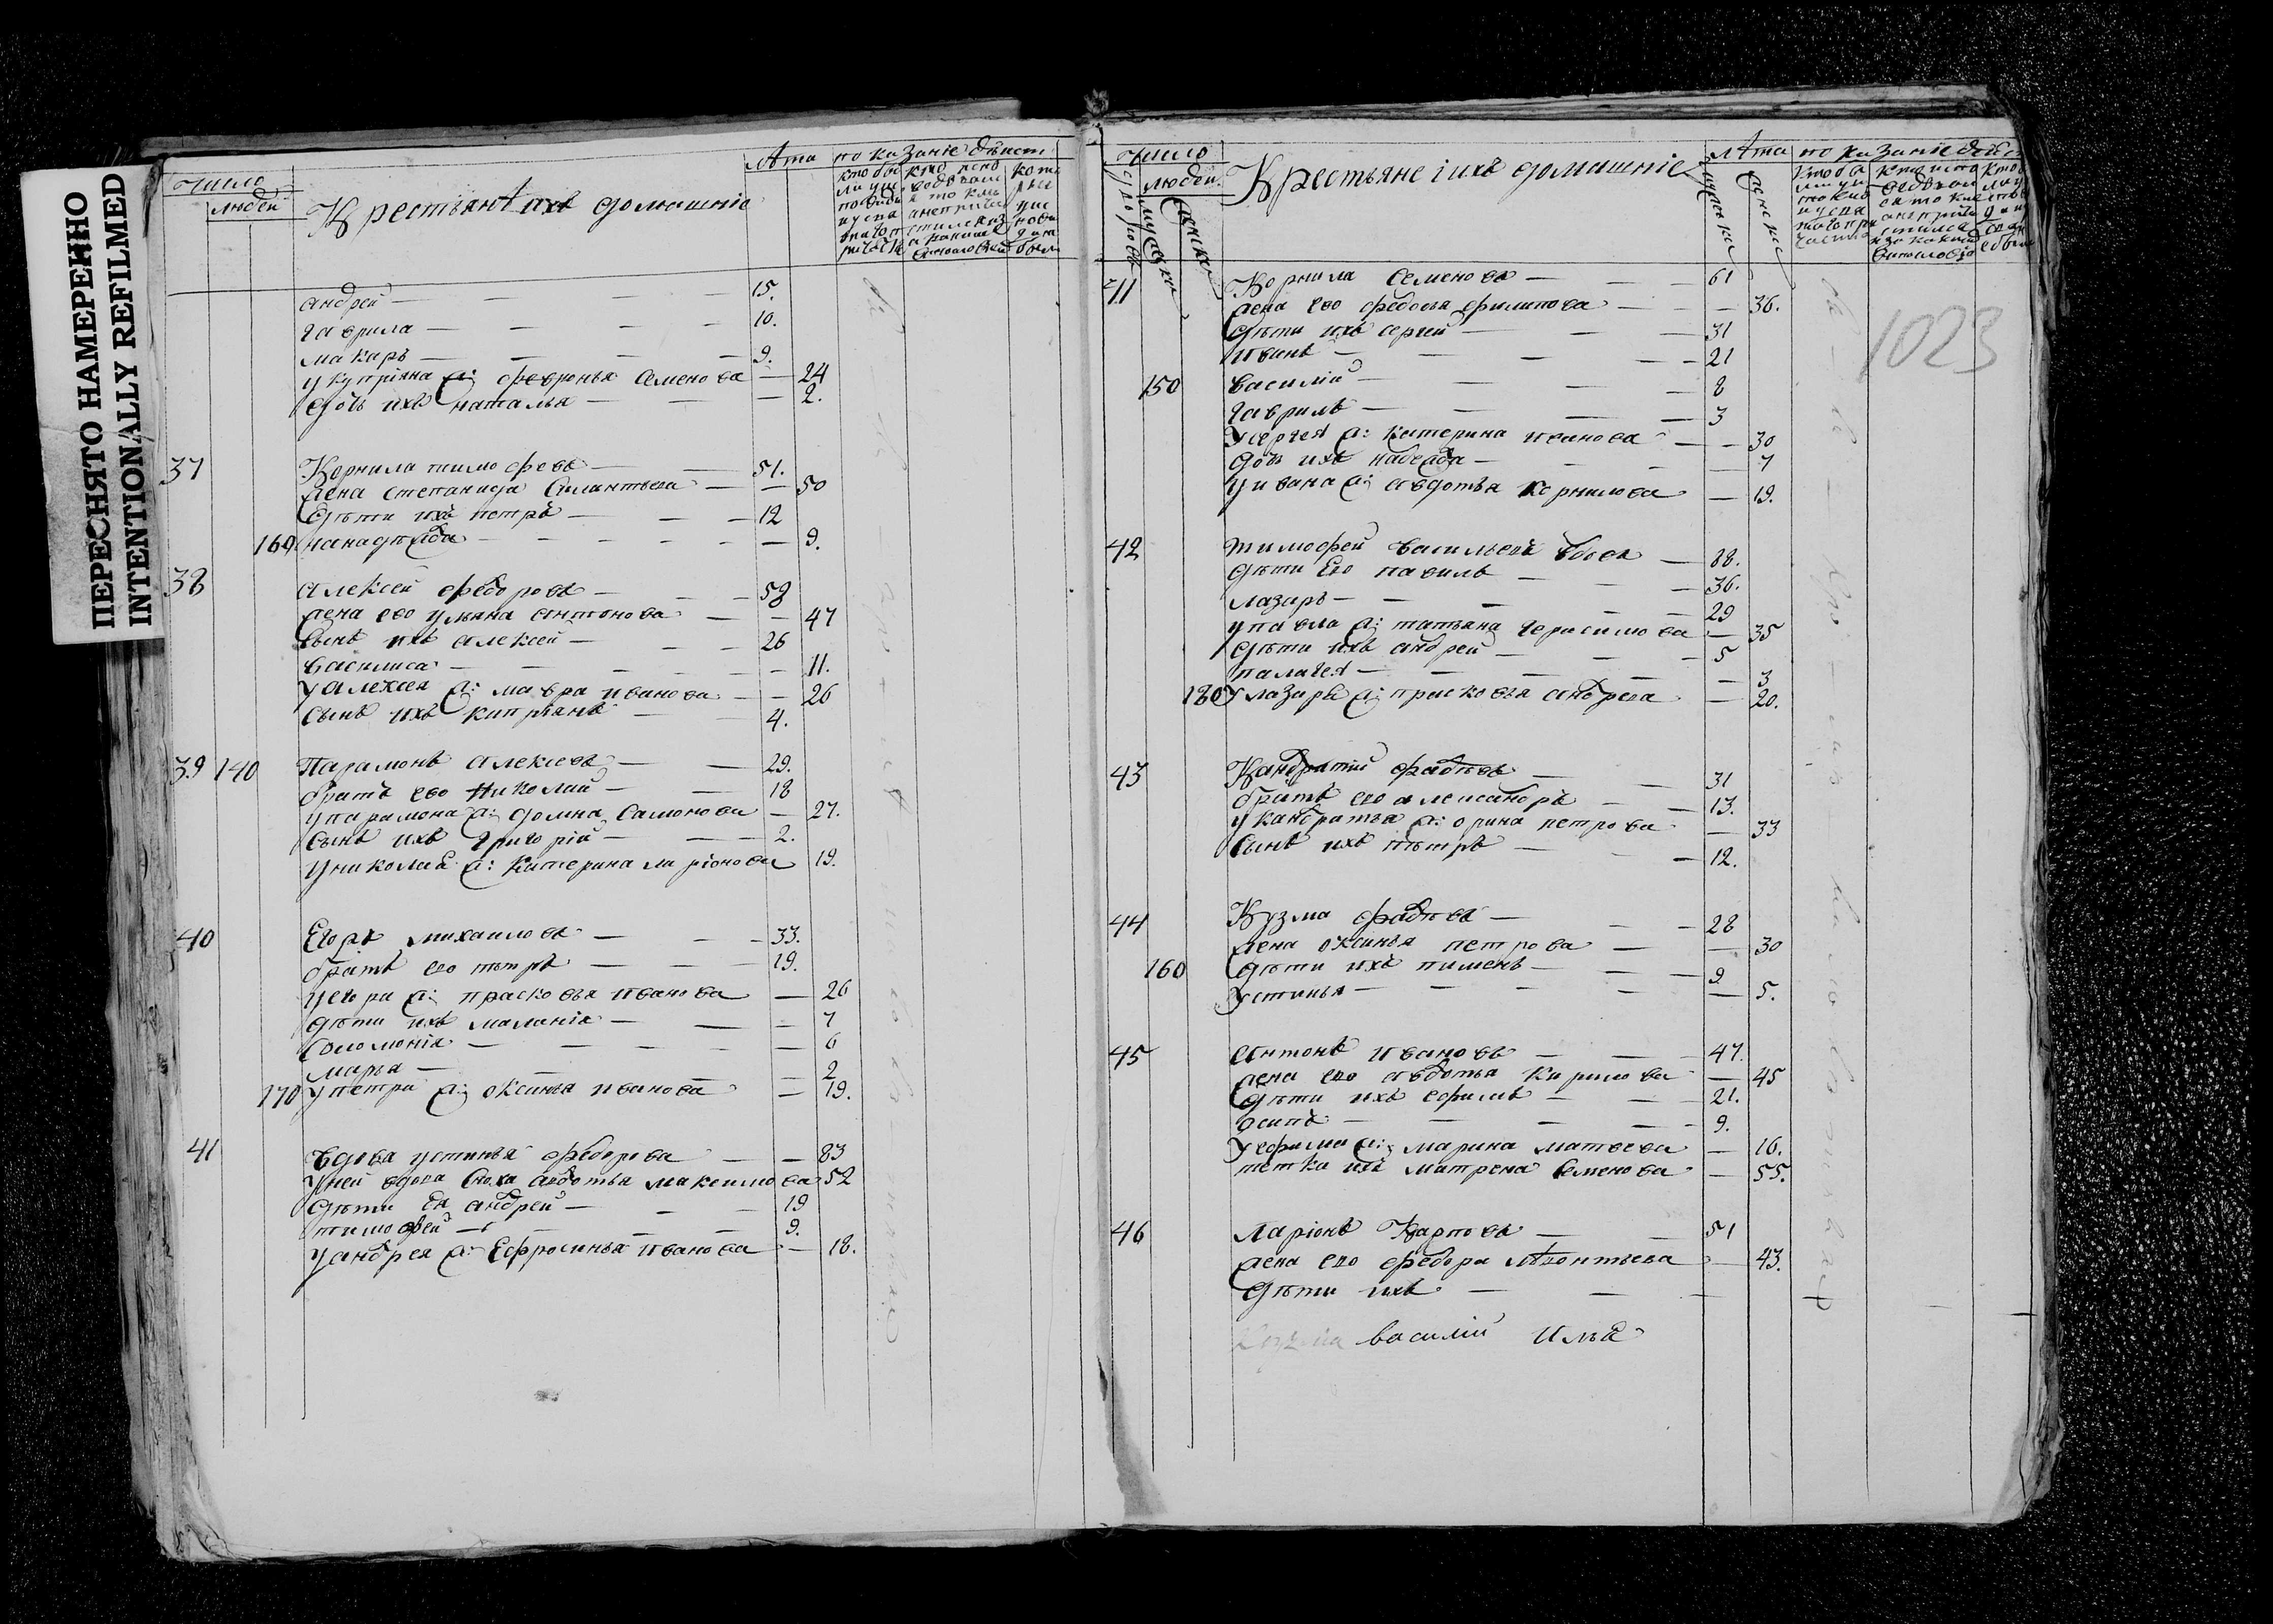 ПЕРЕСНЯТО НАМЕРЕННО
INTENTIONALLY REFILMED
число
людей
Крестьянѣ ихъ домашніе
лѣта
показаніе дѣист
андрей — 15.
гаврила — 10.
макаръ — 9.
у купріяна ж: февронья семенова — 24
дочь ихъ наталья — 2.
37 Корнила тимофеевъ — 51.
жена степанида — 50
дѣти ихъ петръ — 12
160 надежда — 9.
38 алексей федоровъ — 58
жена его ульяна антонова — 47
сынъ ихъ алексей — 26
василиса — 11.
у алексея ж: мавра иванова — 26
сынъ ихъ кипріянъ — 4.
39 140 Парамонъ алексеевъ — 29.
братъ его николай — 18
у парамона ж: домна самонова — 27.
сынъ ихъ григорій — 2.
у николая ж: катерина ларіонова 19.
40 Егоръ михаиловъ — 33.
братъ его петръ — 19.
у егора ж: прасковья иванова — 26
дѣти ихъ маланія — 7
соломонія — 6
марья — 2
170 у петра ж: оксинья иванова — 19.
41 вдова устинья федорова — 83
у ней вдова сноха авдотья максимова 52
дѣти ея андрей — 19
тимофей — 9.
у андрея ж: Ефросинья иванова — 18.
число
людей
дворовъ
мужска
женска
Крестьяне і ихъ домашніе
лѣта
мужеска
женска
показаніе дѣист
1023
411 Корнила семеновъ — 61
жена его федосья филипова — 36.
дѣти ихъ сергей — 31
иванъ — 21
150 василій — 8
гаврилъ — 3
у сергея ж: катерина иванова — 30
дочь ихъ надежда — 7
у ивана ж: авдотья корнилова — 19.
42 тимофей васильевъ вдовъ — 88.
дѣти его павилъ — 36.
лазарь — 29
у павла ж: татьяна герасимова — 35
дѣти ихъ андрей — 5
палагея — 3
180 у лазаря ж: прасковья андреева — 20.
43 Кандратий фадѣевъ — 31
братъ его александръ — 13.
у кандратья ж: орина петрова — 33
сынъ ихъ пѣтръ — 12.
44 Кузма фадѣевъ — 28
жена оксинья петрова — 30
160 дѣти ихъ пименъ — 9
устинья — 5.
45 антонъ ивановъ — 47.
жена его авдотья кирилова — 45
дѣти ихъ ефимъ — 21.
осипъ — 9.
у ефима ж: марина матвева — 16.
тетка ихъ матрена семенова — 55.
46 Ларіонъ Карповъ — 51
жена его федора лѣонтьева — 43.
дѣти ихъ —
Кузма василій илья